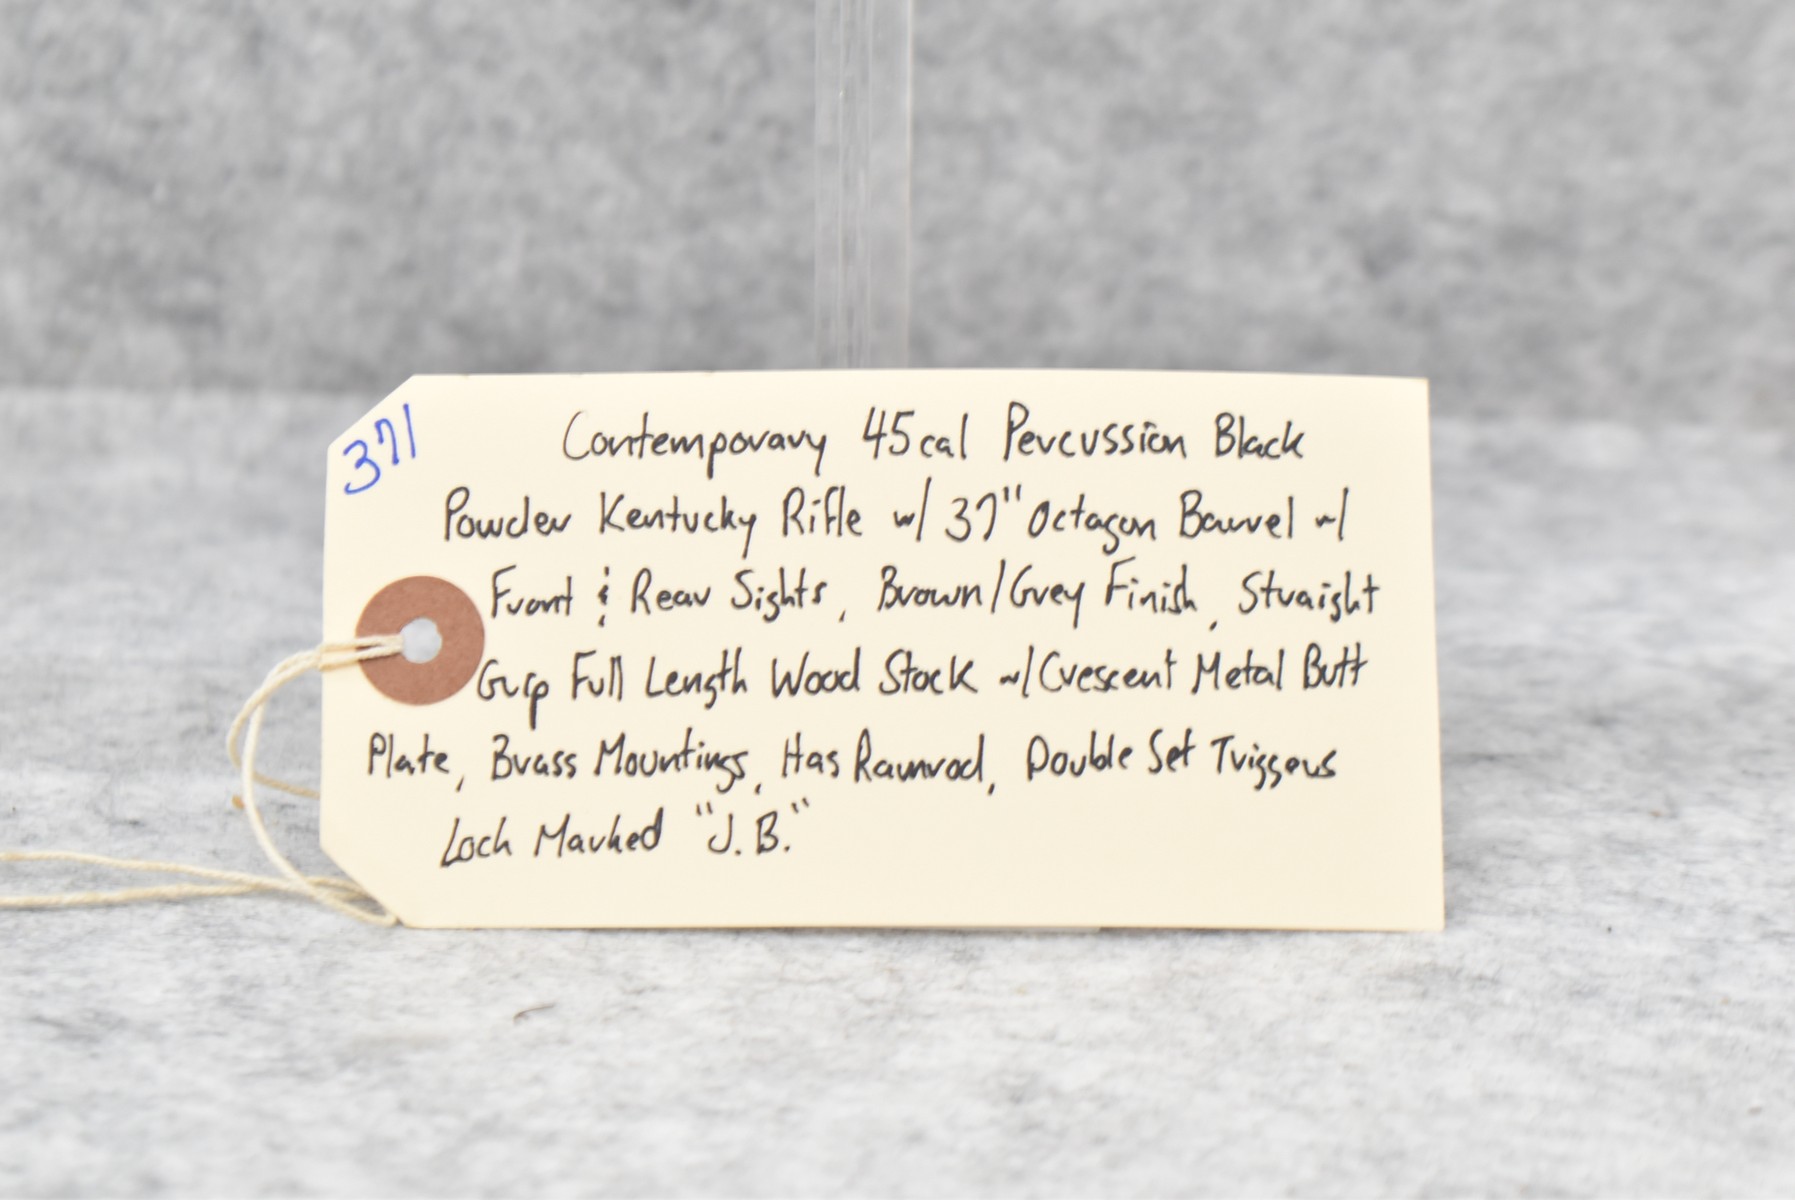 371
Contemporary 45cal Percussion Black
Powder Kentucky Rifle w/ 37" Octagon Barrel w/
Front & Rear Sights, Brown/Grey Finish, Straight
Grip Full Length Wood Stock w/ Crescent Metal Butt
Plate, Brass Mountings, Has Ramrod, Double Set Triggers
Lock Marked "J.B."